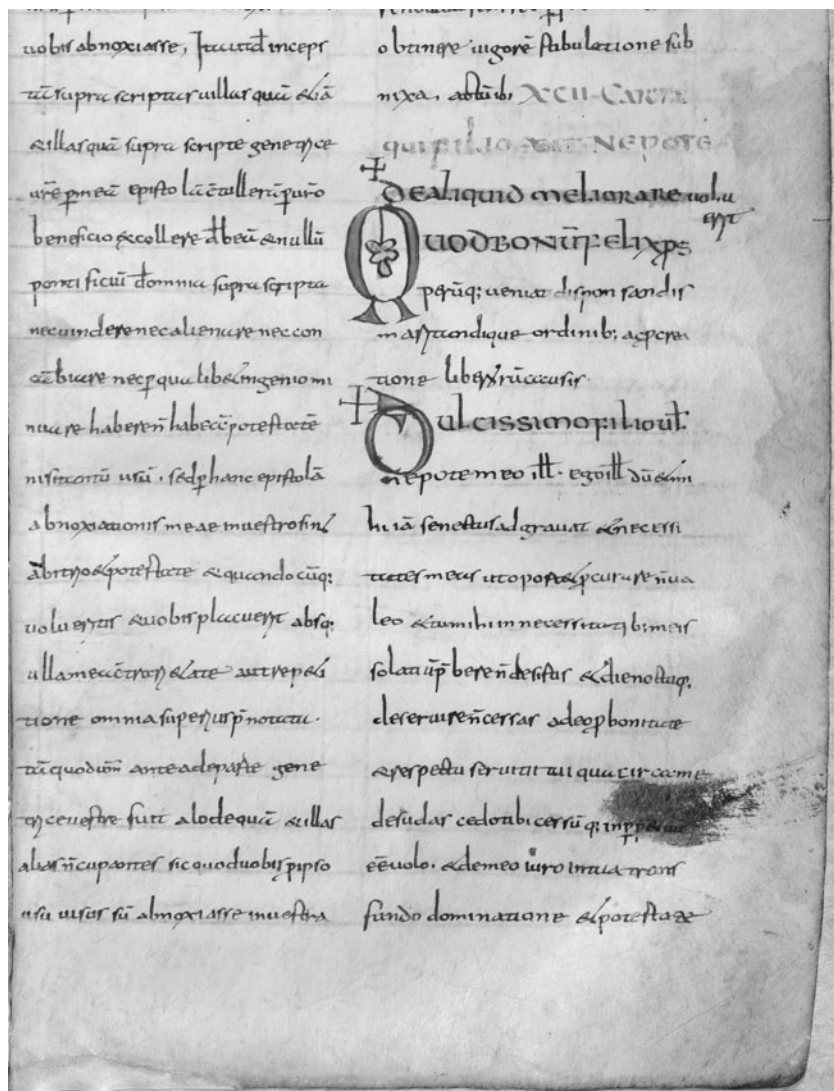 uobis abnoxiasse, Ita ut d inceps
tā supra scriptas uillas quā & iā
& illas quā supra scripte genetrice
urē p meā epistolā cōtuller p uro
beneficio excollere dbeā & nullū
pontificiū d omnia supra scripta
nec uindere nec alienare nec con
cābiare nec p qualib& ingenio mi
nuare haberen habeā potestatē
nisi tantū usū · sed p hanc epistolā
abnoxiationis meae in uestro fini
abitrio & potestate & quandocūq;
uolueritis & uobis placuerit absq;
ulla mea cōtrari&ate aut rep&i
tione omnia superius p notata ·
tā quod ante a de parte gene
trice uestre fuit alode quā & illas
alias n cupantes sic quod uobis p ipso
usu uisus sū abnoxiasse in uestra
obtinere uigorē stibulatione sub
nixa, actū ib, XCII - CARTA
QUI FILIO NEPOTE
DE ALIQUID MELIORARE uolu
erit
QUOD BONŪ FELIX PS
perūq; ueniat dispon sandis
mastundique ordinib; ac pcrea
tione liberūrū causis·
DULCISSIMO FILIO Ut
nepote meo ill̄· ego ill̄ dū & in
hi iā senectus adgrauat & necessi
tates meas ut oport& pcurare n ua
leo & tu mihi in necessitatib; meis
solatiū p beren desistas & die noctuq;
deseruire n cessas adeo p bonitate
& respectu seruitii tui qua circa me
desudas cedo tibi cessūq; in pp&uū
eē uolo· & de meo iuro in tua trans
fundo dominatione & potestate